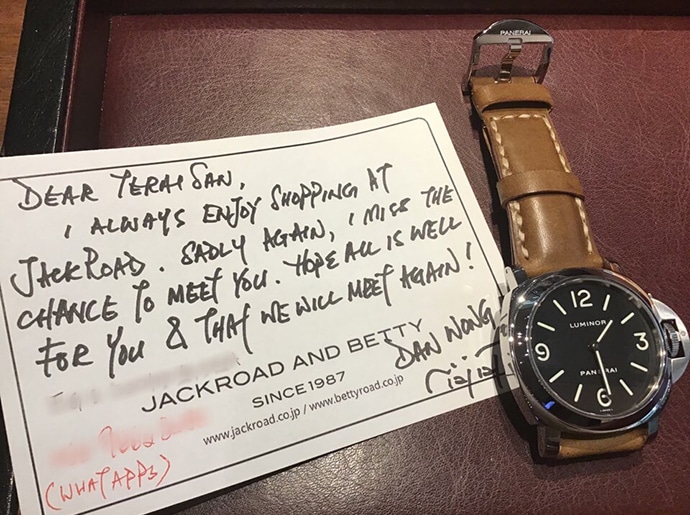 DEAR TERAI SAN,
I ALWAYS ENJOY SHOPPING AT
JACKROAD. SADLY AGAIN, I MISS THE
CHANCE TO MEET YOU. HOPE ALL IS WELL
FOR YOU & THAT WE WILL MEET AGAIN!
DAN WONG
JACKROAD AND BETTY
SINCE 1987
www.jackroad.co.jp / www.bettyroad.co.jp
(WHATAPPS)
PANERAI
12
LUMINOR
9
3
PANERAI
6